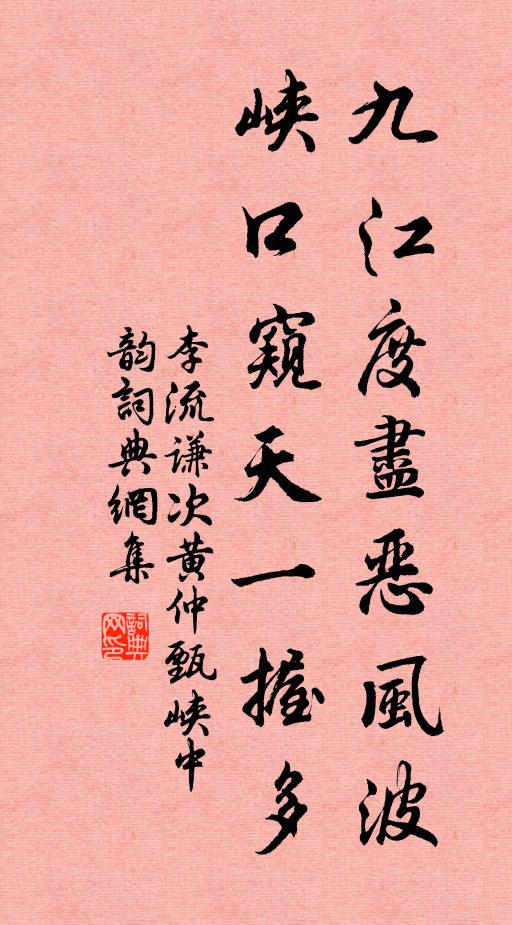 九江度盡惡風波
峽口窺天一握多
李流谦次黄仲甄峽中
韵詞典網集
詞典网印